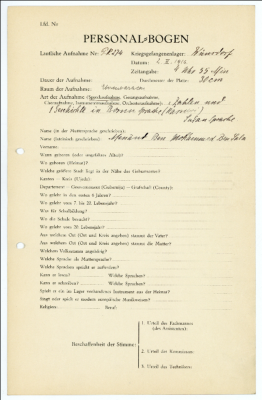 Lfd. Nr.
PERSONAL-BOGEN
Lautliche Aufnahme Nr.: Kriegsgefangenenlager: Wünsdorf
Datum:
Zeitangabe: Uhr 55 Min
Dauer der Aufnahme: Durchmesser der Platte: 30 cm
Raum der Aufnahme:
Art der Aufnahme (Sprechaufnahme, Gesangsaufnahme,
Choraufnahme, Instrumentenaufnahme, Orchesteraufnahme): Zahlen und
Geschichte in
Name (in der Muttersprache geschrieben):
Name (lateinisch geschrieben): Ben Mohammed Ben
Vorname:
Wann geboren (oder ungefähres Alter)?
Wo geboren (Heimat)?
Welche größere Stadt liegt in der Nähe des Geburtsortes?
Kanton — Kreis (Ujedz):
Departement — Gouvernement (Gubernija) — Grafschaft (County):
Wo gelebt in den ersten 6 Jahren?
Wo gelebt vom 7. bis 20. Lebensjahr?
Was für Schulbildung?
Wo die Schule besucht?
Wo gelebt vom 20. Lebensjahr?
Aus welchem Ort (Ort und Kreis angeben) stammt der Vater?
Aus welchem Ort (Ort und Kreis angeben) stammt die Mutter?
Welchem Volksstamm angehörig?
Welche Sprache als Muttersprache?
Welche Sprachen spricht er außerdem?
Kann er lesen? Welche Sprachen?
Kann er schreiben? Welche Sprachen?
Spielt er ein im Lager vorhandenes Instrument aus der Heimat?
Singt oder spielt er modern europäische Musikweisen?
Religion: Beruf:
Beschaffenheit der Stimme:
1. Urteil des Fachmannes
(des Assistenten):
2. Urteil des Kommissars:
3. Urteil des Technikers: